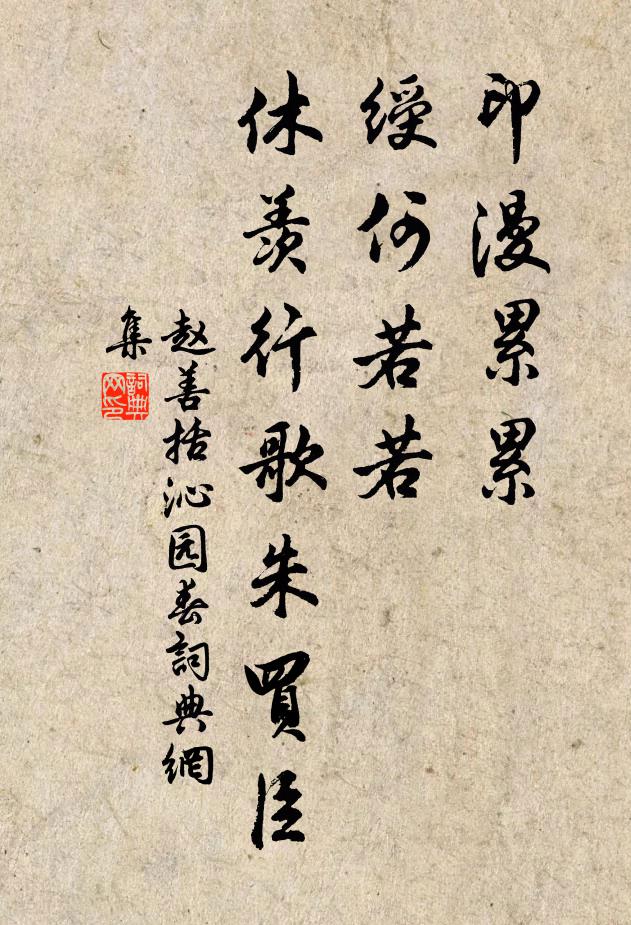 印漫累累
綬何若若
休羨行歌朱買臣
赵善括沁园春詞典網
集
詞典
网印